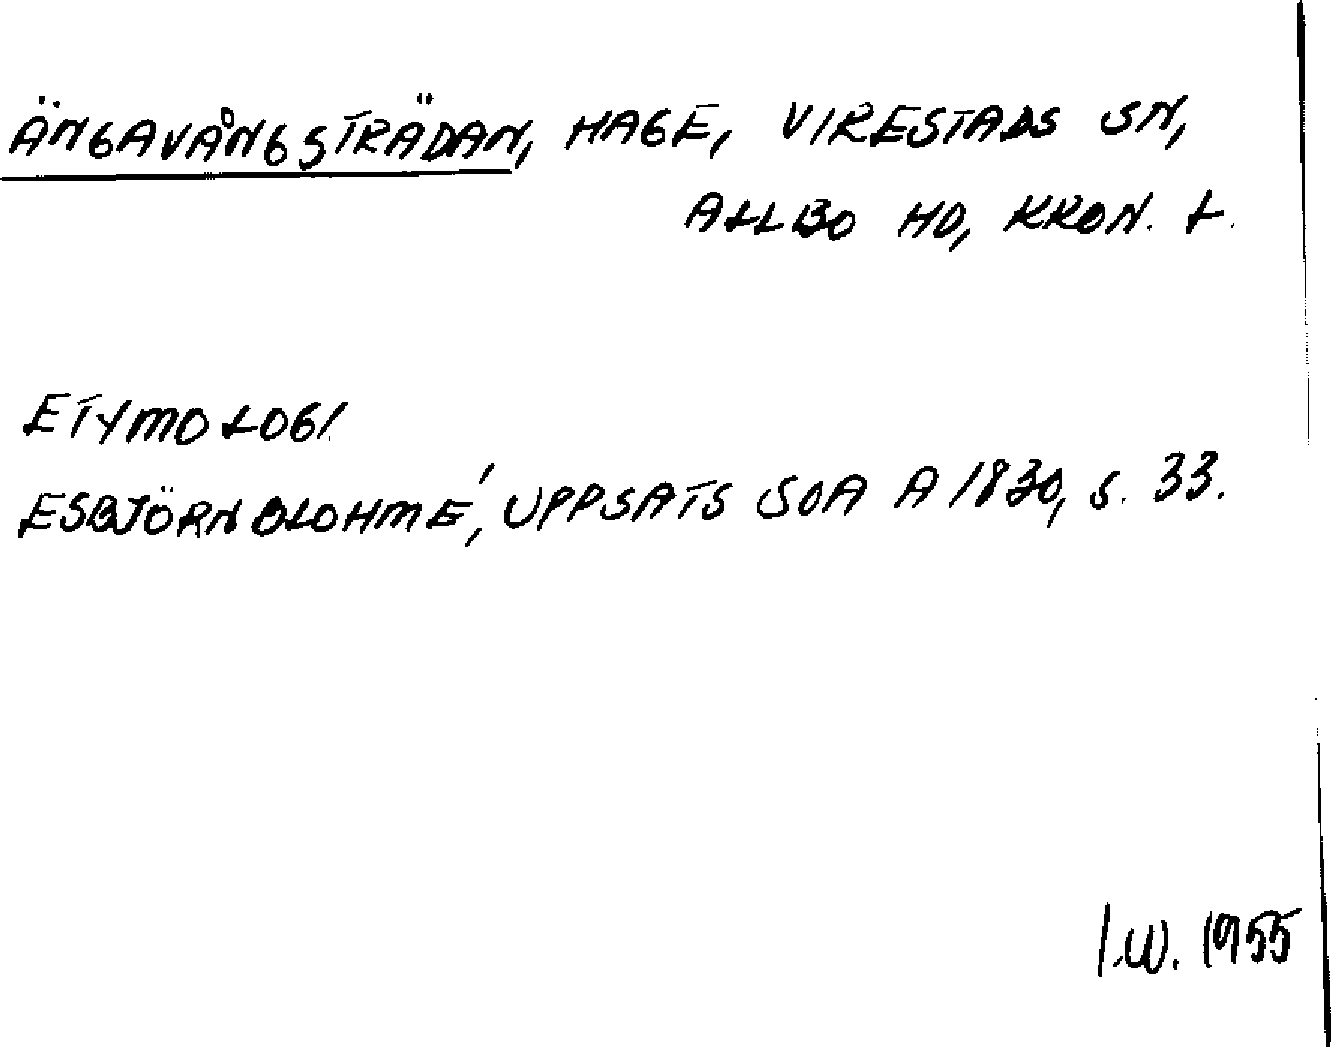 ÄNGAVÅNGSTRÄDAN, HAGE, VIRESTADS SN,
ALLBO HD, KRON. L.
ETYMOLOGI.
ESBJÖRN BLOHMÉ, UPPSATS SOA A 1830, S. 33.
I.W. 1955